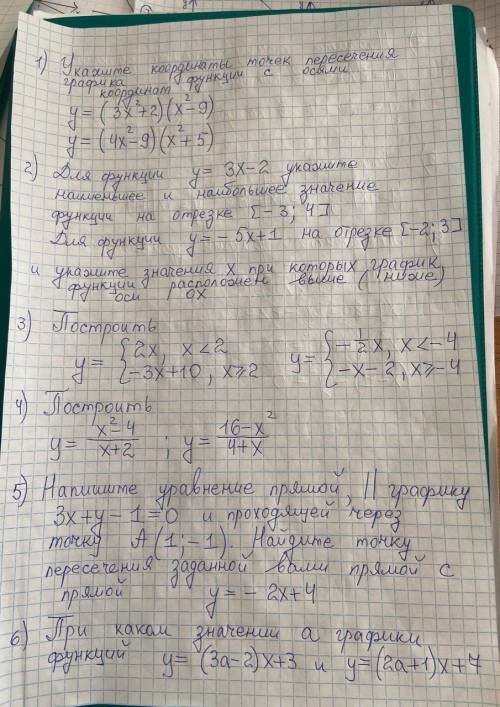 1) Укажите координаты точек пересечения
графика функции с осями
координат
y = (3x²+2)(x²-9)
y = (4x²-9)(x²+5)
2) Для функции y = 3x-2 укажите
наименьшее и наибольшее значение
функции на отрезке [-3; 4]
Для функции y = -5x+1 на отрезке [-2; 3]
и укажите значения x при которых график
функции расположен выше (ниже)
оси ox
3) Построить
y = { 2x, x<2 y = { -1/2x, x<-4
-3x+10, x⩾2 -x-2, x⩾-4
4) Построить
y = x²-4/x+2 ; y = 16-x²/4+x
5) Напишите уравнение прямой, || графику
3x+y-1=0 и проходящей через
точку A(1;-1). Найдите точку
пересечения заданной вами прямой с
прямой y = -2x+4
6) При каком значении a графики
функций y = (3a-2)x+3 и y=(2a+1)x+7